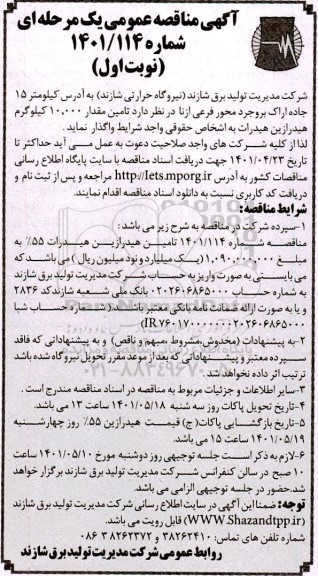 آگهی مناقصه عمومی یک مرحله ای
شماره ۱۴۰۱/۱۱۴
(نوبت اول)
شرکت مدیریت تولید برق شازند (نیروگاه حرارتی شازند) به آدرس کیلومتر ۱۵
جاده اراک بروجرد محور فرعی ازنا در نظر دارد تامین مقدار ۱۰,۰۰۰ کیلوگرم
هیدرازین هیدرات به اشخاص حقوقی واجد شرایط واگذار نماید.
لذا از کلیه شرکت های واجد صلاحیت دعوت به عمل می آید حداکثر تا
تاریخ ۱۴۰۱/۰۴/۲۳ جهت دریافت اسناد مناقصه با سایت پایگاه اطلاع رسانی
مناقصات کشور به آدرس http://Iets.mporg.ir مراجعه و پس از ثبت نام و
دریافت کد کاربری نسبت به دانلود اسناد مناقصه اقدام نمایند.
شرایط مناقصه:
۱-سپرده شرکت در مناقصه به شرح زیر می باشد:
مناقصه شماره ۱۴۰۱/۱۱۴ تامین هیدرازین هیدرات ۵۵٪ به
مبلغ ۱,۰۹۰,۰۰۰,۰۰۰ (یک میلیارد و نود میلیون ریال) می باشد که
می بایستی به صورت واریز به حساب شرکت مدیریت تولید برق شازند
به شماره حساب ۰۲۰۲۶۰۶۸۶۵۰۰۰ بانک ملی شعبه شازند کد ۲۸۳۶
و یا به صورت ارائه ضمانت نامه بانکی معتبر باشد. (شماره حساب شبا
۰۲۰۲۶۰۶۸۶۵۰۰۰ IR)
۲-به پیشنهادات (مخدوش، مشروط، مبهم و ناقص) و به پیشنهاداتی که فاقد
سپرده معتبر و پیشنهاداتی که بعد از موعد مقرر تحویل نیروگاه شده باشد
ترتیب اثر داده نخواهد شد.
۳-سایر اطلاعات و جزئیات مربوط به مناقصه در اسناد مناقصه مندرج است.
۴-تاریخ تحویل پاکات روز سه شنبه ۱۴۰۱/۰۵/۱۸ ساعت ۱۳ می باشد.
۵-تاریخ بازگشایی پاکات (ج) قیمت هیدرازین ۵۵٪ روز چهارشنبه
۱۴۰۱/۰۵/۱۹ ساعت ۱۵ می باشد.
۶-لازم به ذکر است جلسه توجیهی روز دوشنبه مورخ ۱۴۰۱/۰۵/۱۰ ساعت
۱۰ صبح در سالن کنفرانس شرکت مدیریت تولید برق شازند برگزار خواهد
شد. حضور در جلسه توجیهی الزامی می باشد.
توجه: ضمنا این آگهی در سایت اطلاع رسانی شرکت مدیریت تولید برق شازند
(WWW.Shazandtpp.ir) قابل رویت می باشد.
شماره تلفن های تماس: ۳۸۲۶۲۴۱۰ و ۳۸۲۶۲۳۷۲ ۰۸۶
روابط عمومی شرکت مدیریت تولید برق شازند